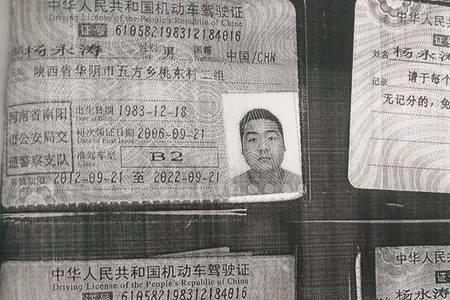 中华人民共和国机动车驾驶证
Driving License of the People's Republic of China
证号 610582198312184016
杨永涛 男 国籍 中国/CHN
陕西省华阴市五方乡桃东村二组
河南省南阳
市公安局交
通警察支队
出生日期 1983-12-18
初次领证日期 2006-09-21
准驾车型 B2
有效期限 2012-09-21 至 2022-09-21
华人民共
证号
姓名 杨永涛
记录 请于每个
无记分的,免
中华人民共和国机动车驾驶证
Driving License of the People's Republic of China
证号 610582198312184016
中华人民
杨永涛